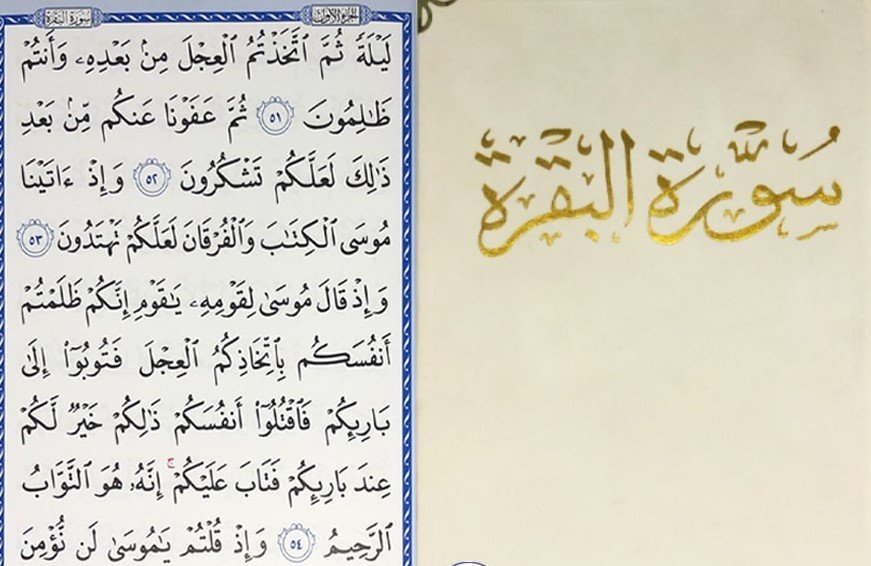 سورة البقرة
الجزء الأول
لَيْلَةً ثُمَّ ٱتَّخَذْتُمُ ٱلْعِجْلَ مِنۢ بَعْدِهِۦ وَأَنتُمْ
ظَٰلِمُونَ ٥١ ثُمَّ عَفَوْنَا عَنكُم مِّنۢ بَعْدِ
ذَٰلِكَ لَعَلَّكُمْ تَشْكُرُونَ ٥٢ وَإِذْ ءَاتَيْنَا
مُوسَى ٱلْكِتَٰبَ وَٱلْفُرْقَانَ لَعَلَّكُمْ تَهْتَدُونَ ٥٣
وَإِذْ قَالَ مُوسَىٰ لِقَوْمِهِۦ يَٰقَوْمِ إِنَّكُمْ ظَلَمْتُمْ
أَنفُسَكُم بِٱتِّخَاذِكُمُ ٱلْعِجْلَ فَتُوبُوٓا۟ إِلَىٰ
بَارِئِكُمْ فَٱقْتُلُوٓا۟ أَنفُسَكُمْ ذَٰلِكُمْ خَيْرٌ لَّكُمْ
عِندَ بَارِئِكُمْ فَتَابَ عَلَيْكُمْ ۚ إِنَّهُۥ هُوَ ٱلتَّوَّابُ
ٱلرَّحِيمُ ٥٤ وَإِذْ قُلْتُمْ يَٰمُوسَىٰ لَن نُّؤْمِنَ
سُورَةُ البَقَرَةِ